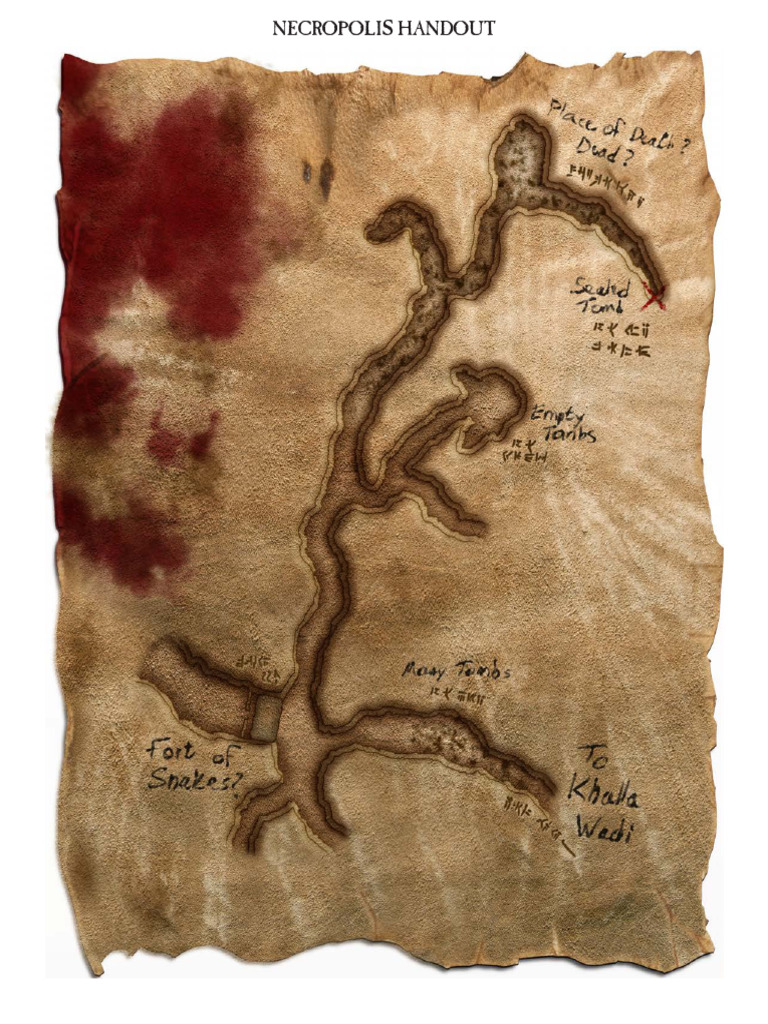 NECROPOLIS HANDOUT
Place of Death?
Dead?
Sealed
Tomb
Empty
Tombs
Many Tombs
Fort of
Snakes?
To
Khalla
Wadi